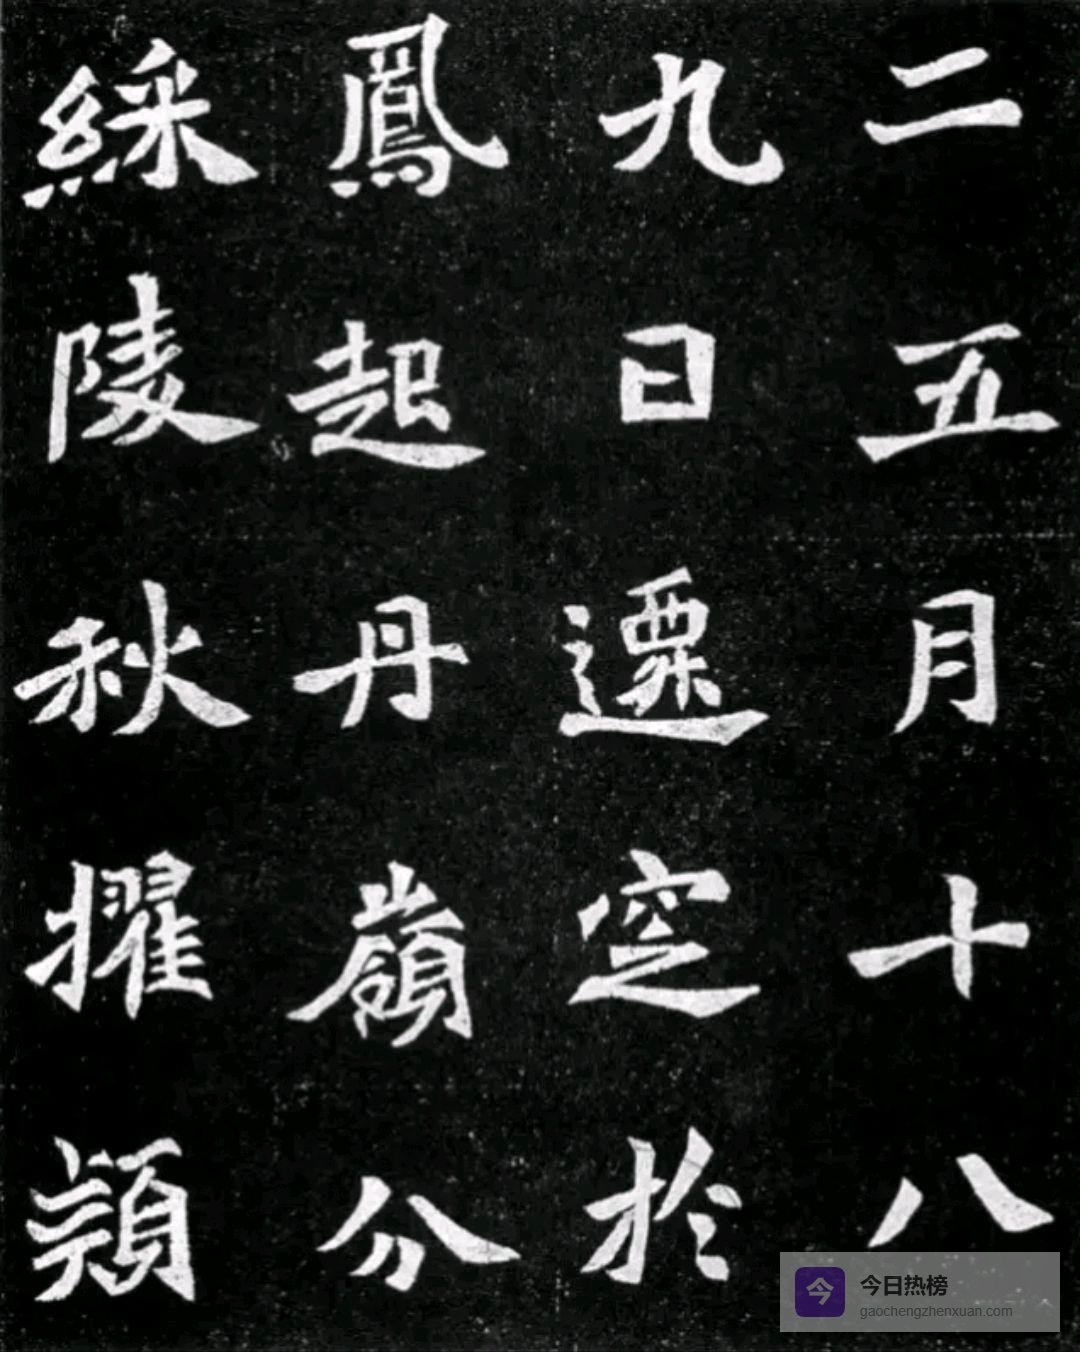 二五月十八
九日遷窆於
鳳起丹嶺分
綵陵秋擢頴
今日热榜
gaochengzhenxuan.com